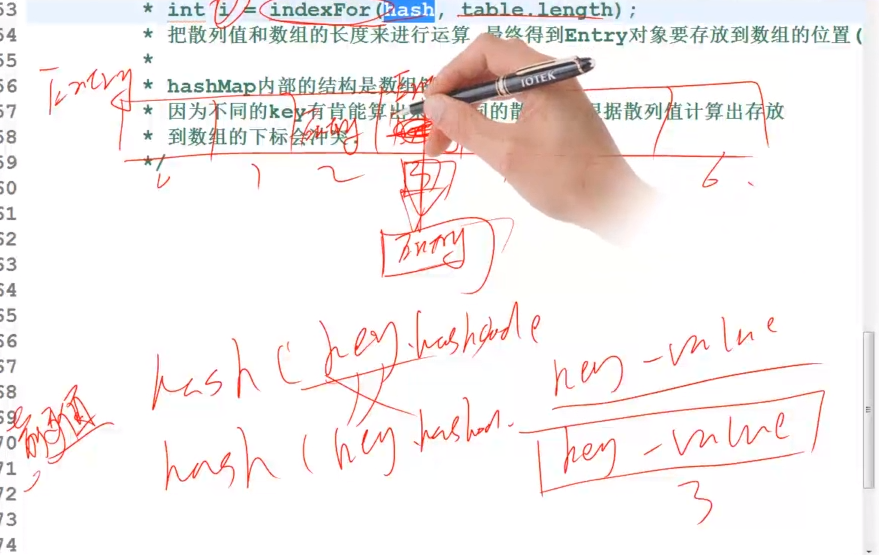 53 * int i = indexFor(hash, table.length);
54 * 把散列值和数组的长度来进行运算 最终得到Entry对象要存放到数组的位置(
55 *
56 * hashMap内部的结构是数组
57 * 因为不同的key有肯能算出 同的散 根据散列值计算出存放
58 * 到数组的下标会冲突.
59 */
60
61
62
63
64
65
66
67
68
69
70
71
72
73
74
Entry
Entry
1 2 3 6
Entry
hash (key.hashcode
key-value
hash (key.hashcod.
key-value
3
IOTEK